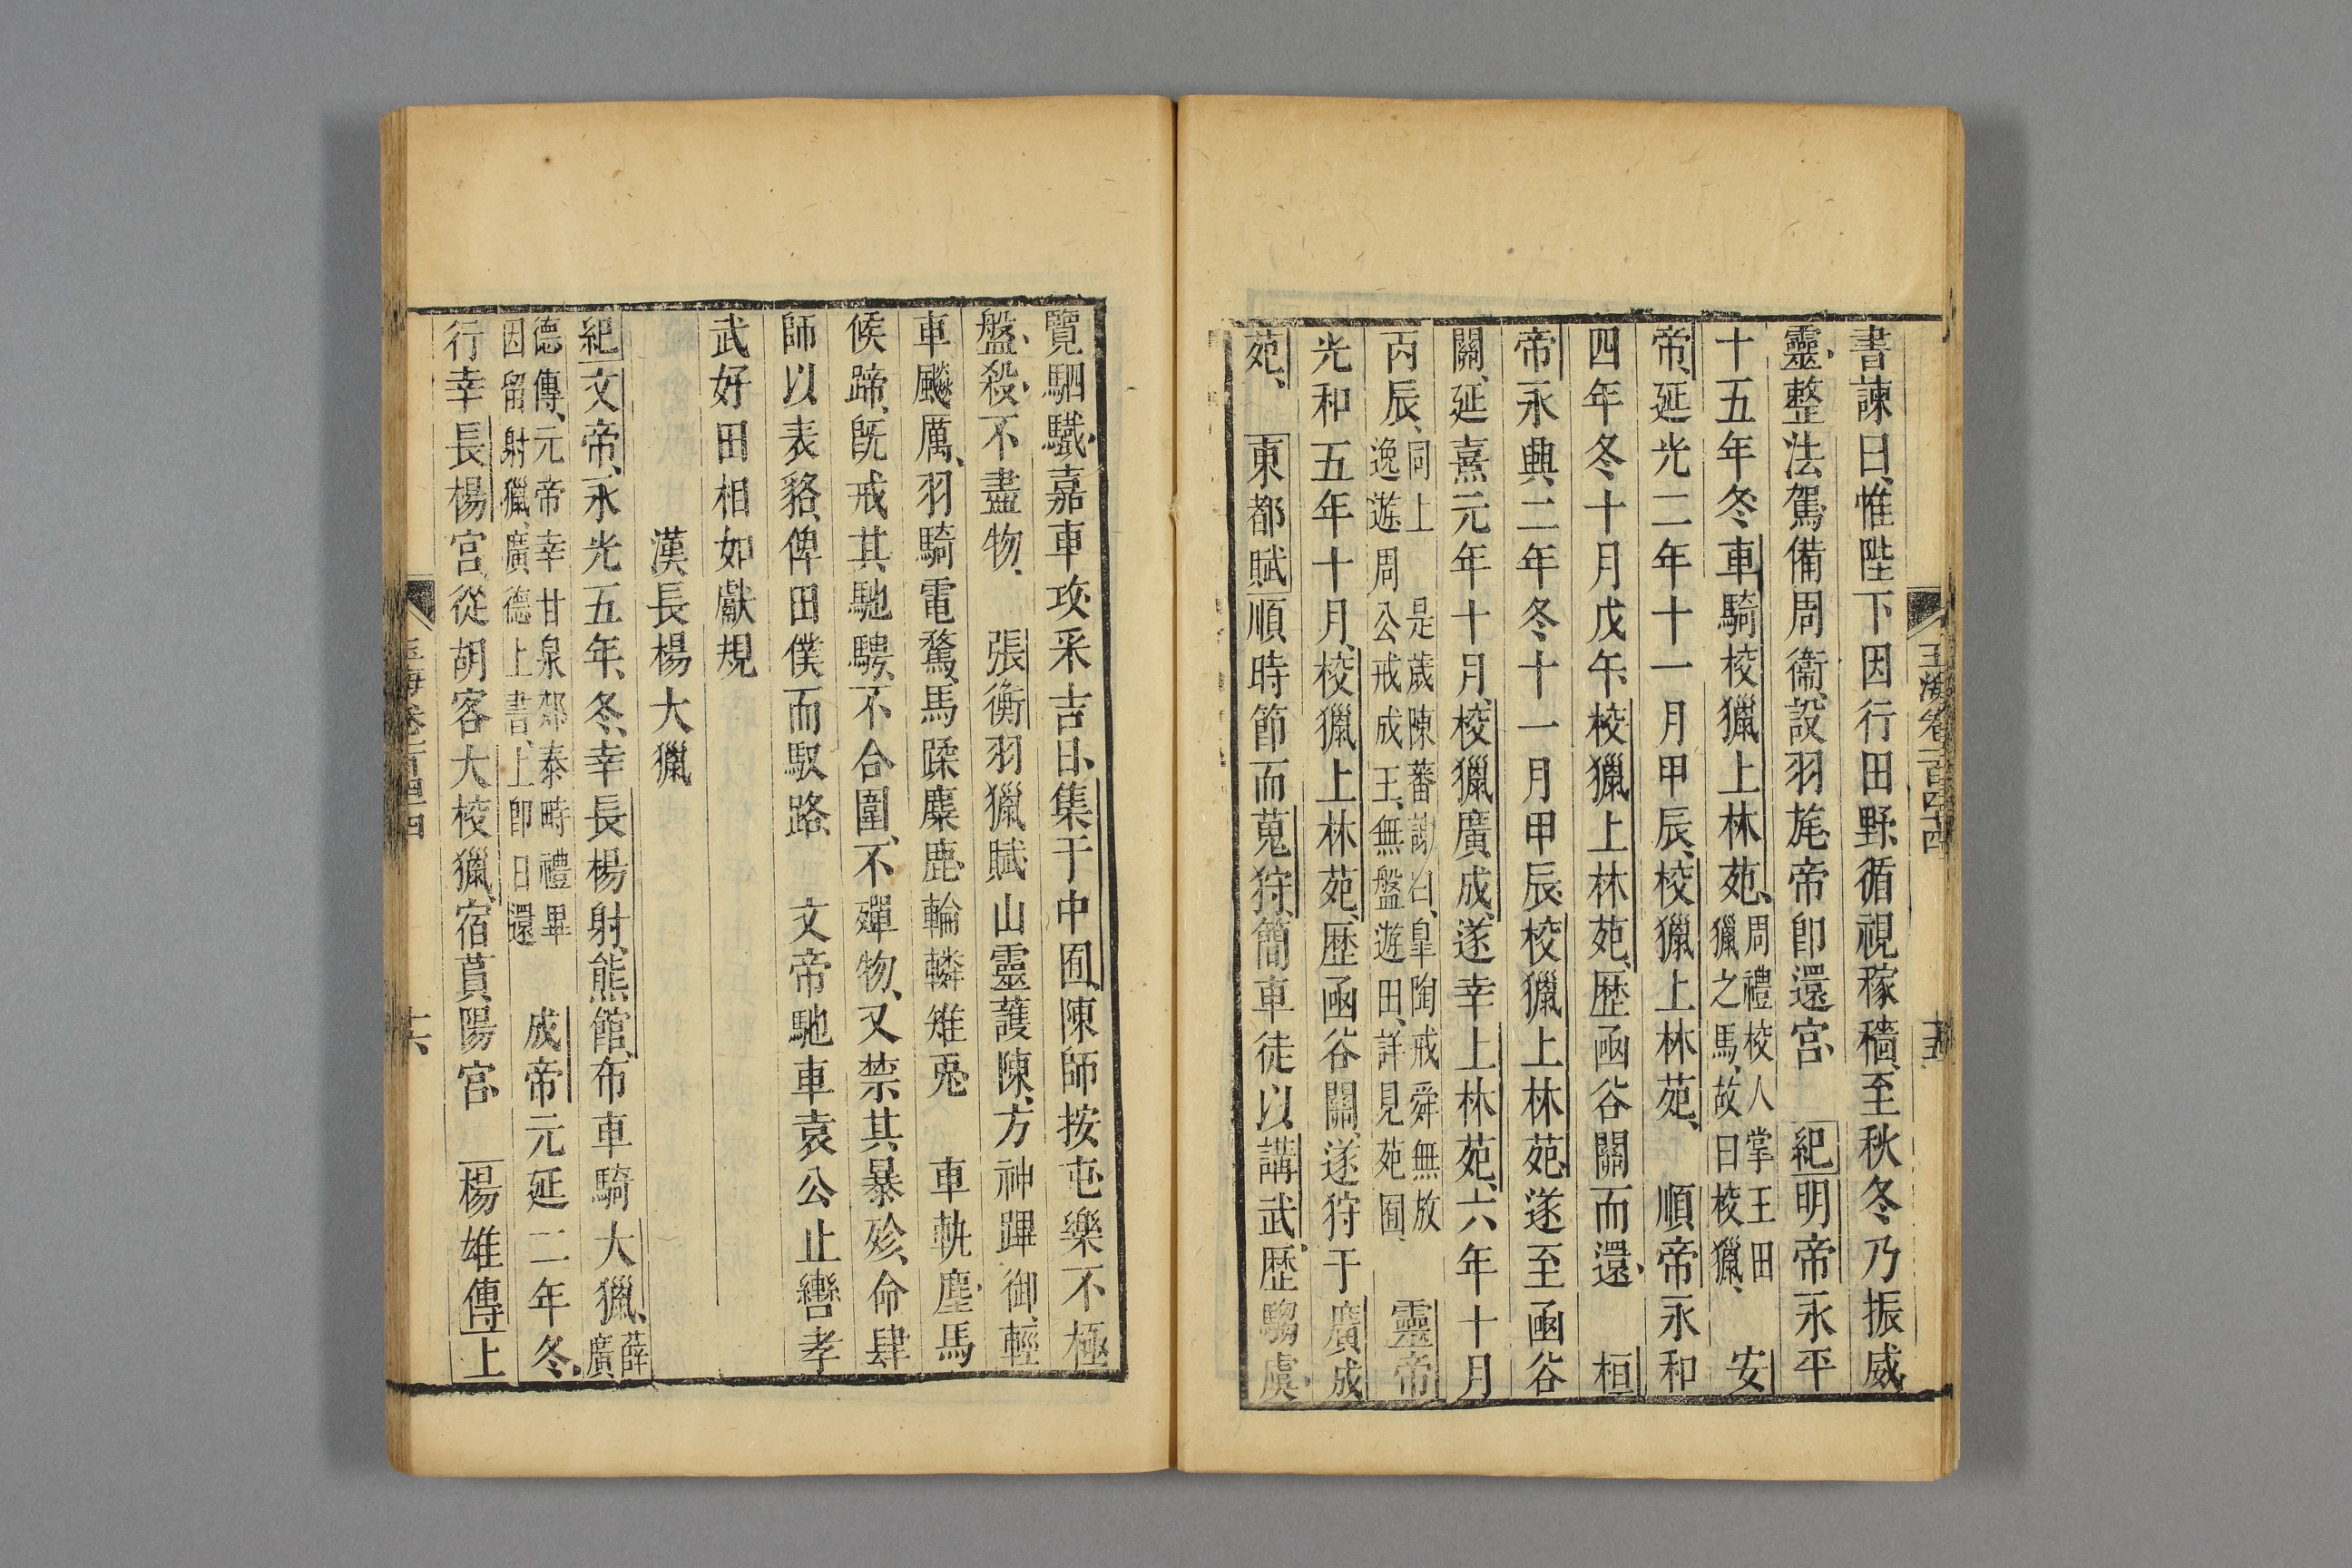 玉海卷一百四十四
十五
書諫曰惟陛下因行田野循視稼穡至秋冬乃振威
靈整法駕備周衞設羽旄帝卽還宮 紀明帝永平
十五年冬車騎校獵上林苑周禮校人掌王田獵之馬故曰校獵 安
帝延光二年十一月甲辰校獵上林苑 順帝永和
四年冬十月戊午校獵上林苑歷函谷關而還 桓
帝永興二年冬十一月甲辰校獵上林苑遂至函谷
關延熹元年十月校獵廣成遂幸上林苑六年十月
丙辰同上 是歲陳蕃諫曰臯陶戒舜無放逸遊周公戒成王無盤遊田詳見苑囿 靈帝
光和五年十月校獵上林苑歷函谷關遂狩于廣成
苑 東都賦順時節而蒐狩簡車徒以講武歷騶虞
覽駟驖嘉車攻采吉日集于中囿陳師按屯樂不極
盤殺不盡物 張衡羽獵賦山靈護陳方神蹕御輕
車飈厲羽騎電騖馬蹂麋鹿輪轔雉兎 車軌塵馬
候蹄旣戒其馳騁不合圍不殫物又禁其暴殄命肆
師以表貉俾田僕而馭路 文帝馳車袁公止轡孝
武好田相如獻規
漢長楊大獵
紀文帝永光五年冬幸長楊射熊館布車騎大獵薛廣
德傳元帝幸甘泉郊泰畤禮畢因留射獵廣德上書上卽日還 成帝元延二年冬
行幸長楊宮從胡客大校獵宿萯陽宮 楊雄傳上
玉海卷一百四十四
十六